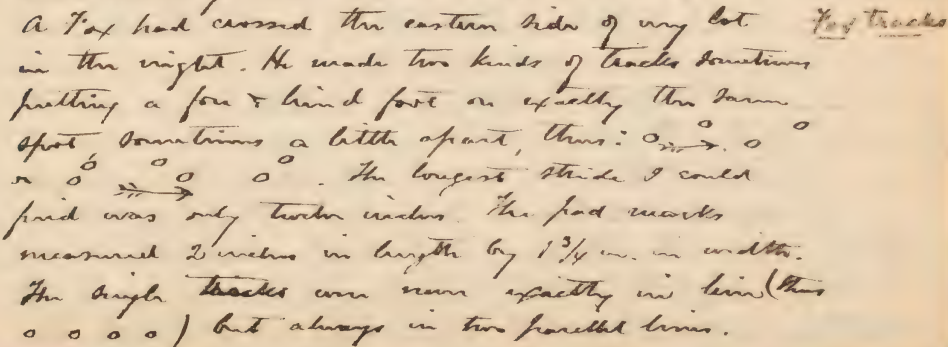 A Fox had crossed the eastern side of my lot
Fox tracks
in the night. He made two kinds of tracks sometimes
putting a fore & hind foot on exactly the same
spot, sometimes a little apart, thus:
or . The longest stride I could
find was only twelve inches. The pad marks
measured 2 inches in length by 1 3/4 in. in width.
The single tracks were never exactly in line (thus
o o o o) but always in two parallel lines.